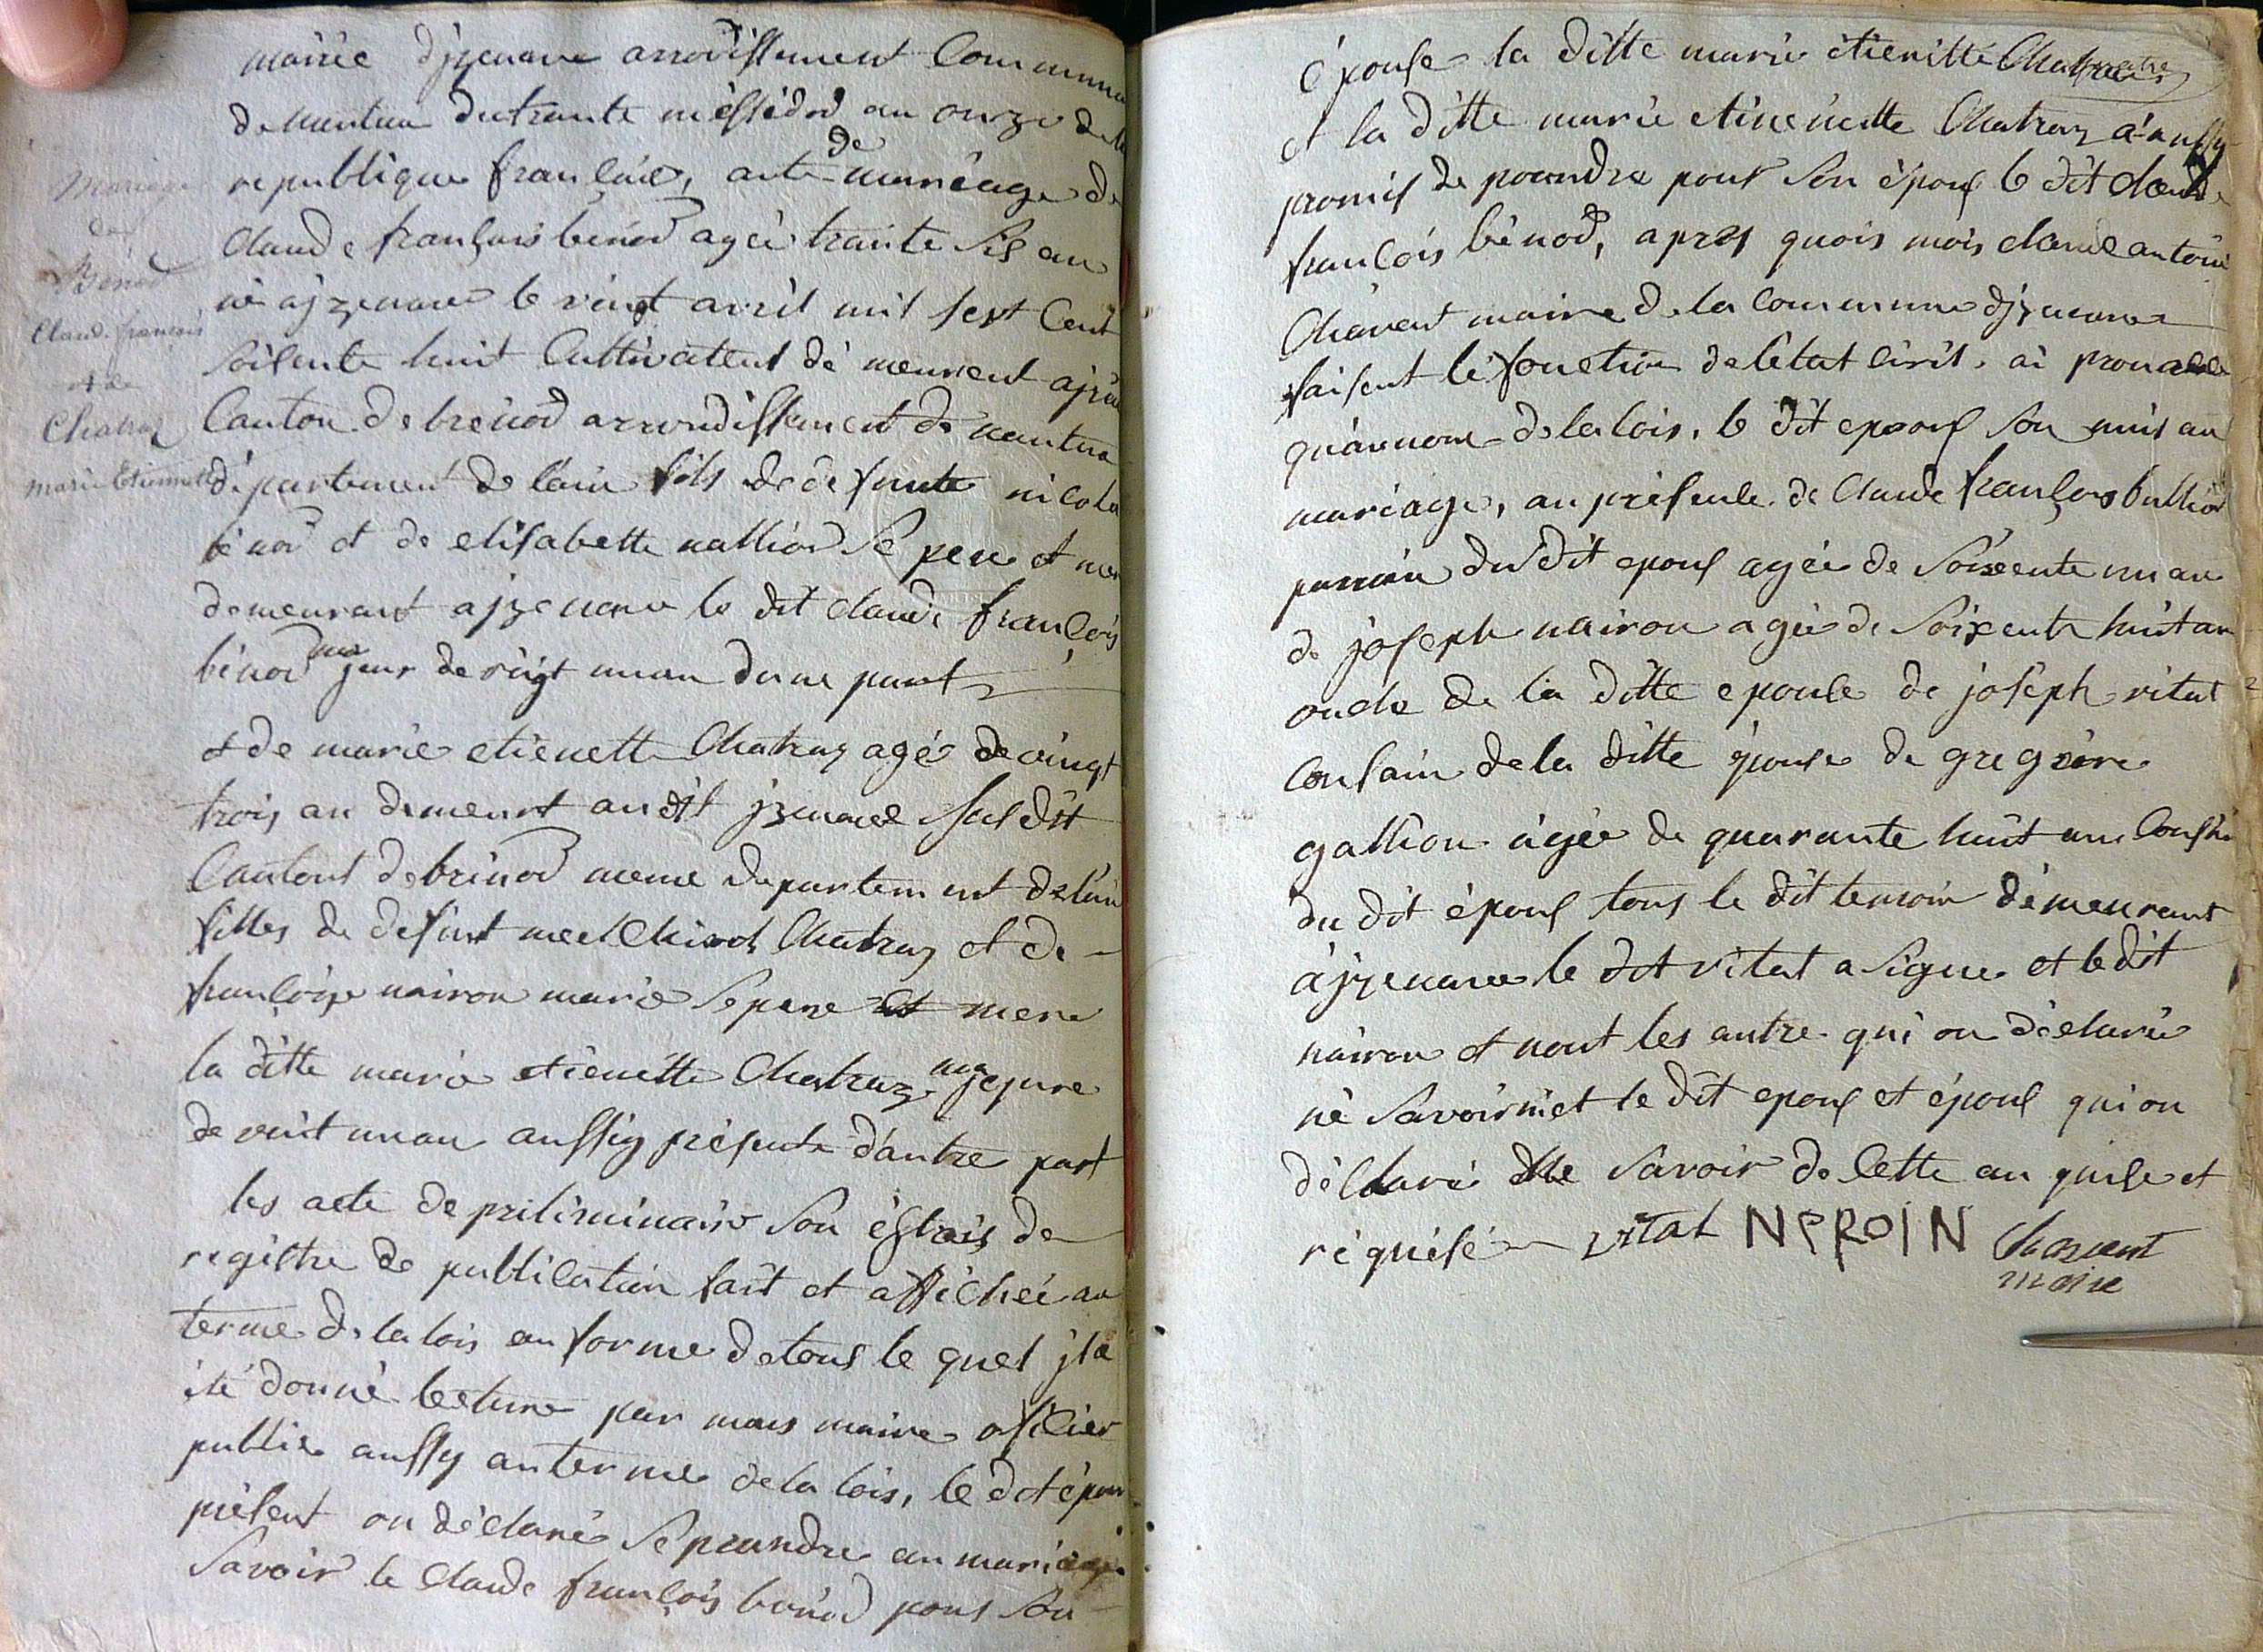 mairie d'jzenave arrodissement Communa
de nantua du trante méssidor an onze de la
republique françaice, acte de mariage de
Claude françois bénod ageé trante sis an
né ajzenave le vingt avril mil sept Cent
soisente huit Cultivateur dé meurent ajze
Canton de brénod arrondissement de nantua
département de lain fils de defunte nicola
bénod et de elisabette nalliod se pere et mer
demeurant ajzenave le dit claude françois
bénod majeur de vingt un an dune part
et de marie etienette Chatraz agé de vingt
trois an demeurt au dit jzenave susdit
Cantont de brénod meme departement de lain
filles de defunt melchirot Chatraz et de
françoise nairon marié se pere et mere
la ditte marie etienette Chatraz majeure
de vint un an aussiy présente d'autre part
les acte de préliminaire son éstrais de
registre de publication fait et affichéé au
terme de la lois en forme de tous le quel jl a
été donné lecture par mois maire officier
public aussy au terme de la lois, le dit épou
présent on déclaré se prandre an mariage
savoir le Claude françois bénod pour son
Mariage
de
Bénod
Claud. françois
et de
Chatraz
marie Etiennette
épouse la ditte marie étienitte Chatraz
et la ditte marie etienette Chatraz a aussy
promis de prandre pour son épous le dit claude
françois bénod, apres quois mois claude antoine
Chavent maire de la Commune djzenave
faisent lé fonction de létat civil, ai prononcé
qu'au nom de la lois, le dit epous son unis an
mariage, an présence de Claude françois bullio
parrain du dit epous ageé de soixente un an
de joseph nairon ageé de soixente huit an
oncle de la ditte epouse de joseph vitat
Cousain de la ditte épouse de gregoire
gallion ageé de quarante huit an Cousin
du dit épous tous le dit temoin démeurant
à jzenave le dit vitat a signe et le dit
nairon et nont les autre qui on déclaré
né savoir niet le dit epous et épous qui on
déclaré de savoir de cette an quise et
réquisé vital NEROIN Chavent
maire